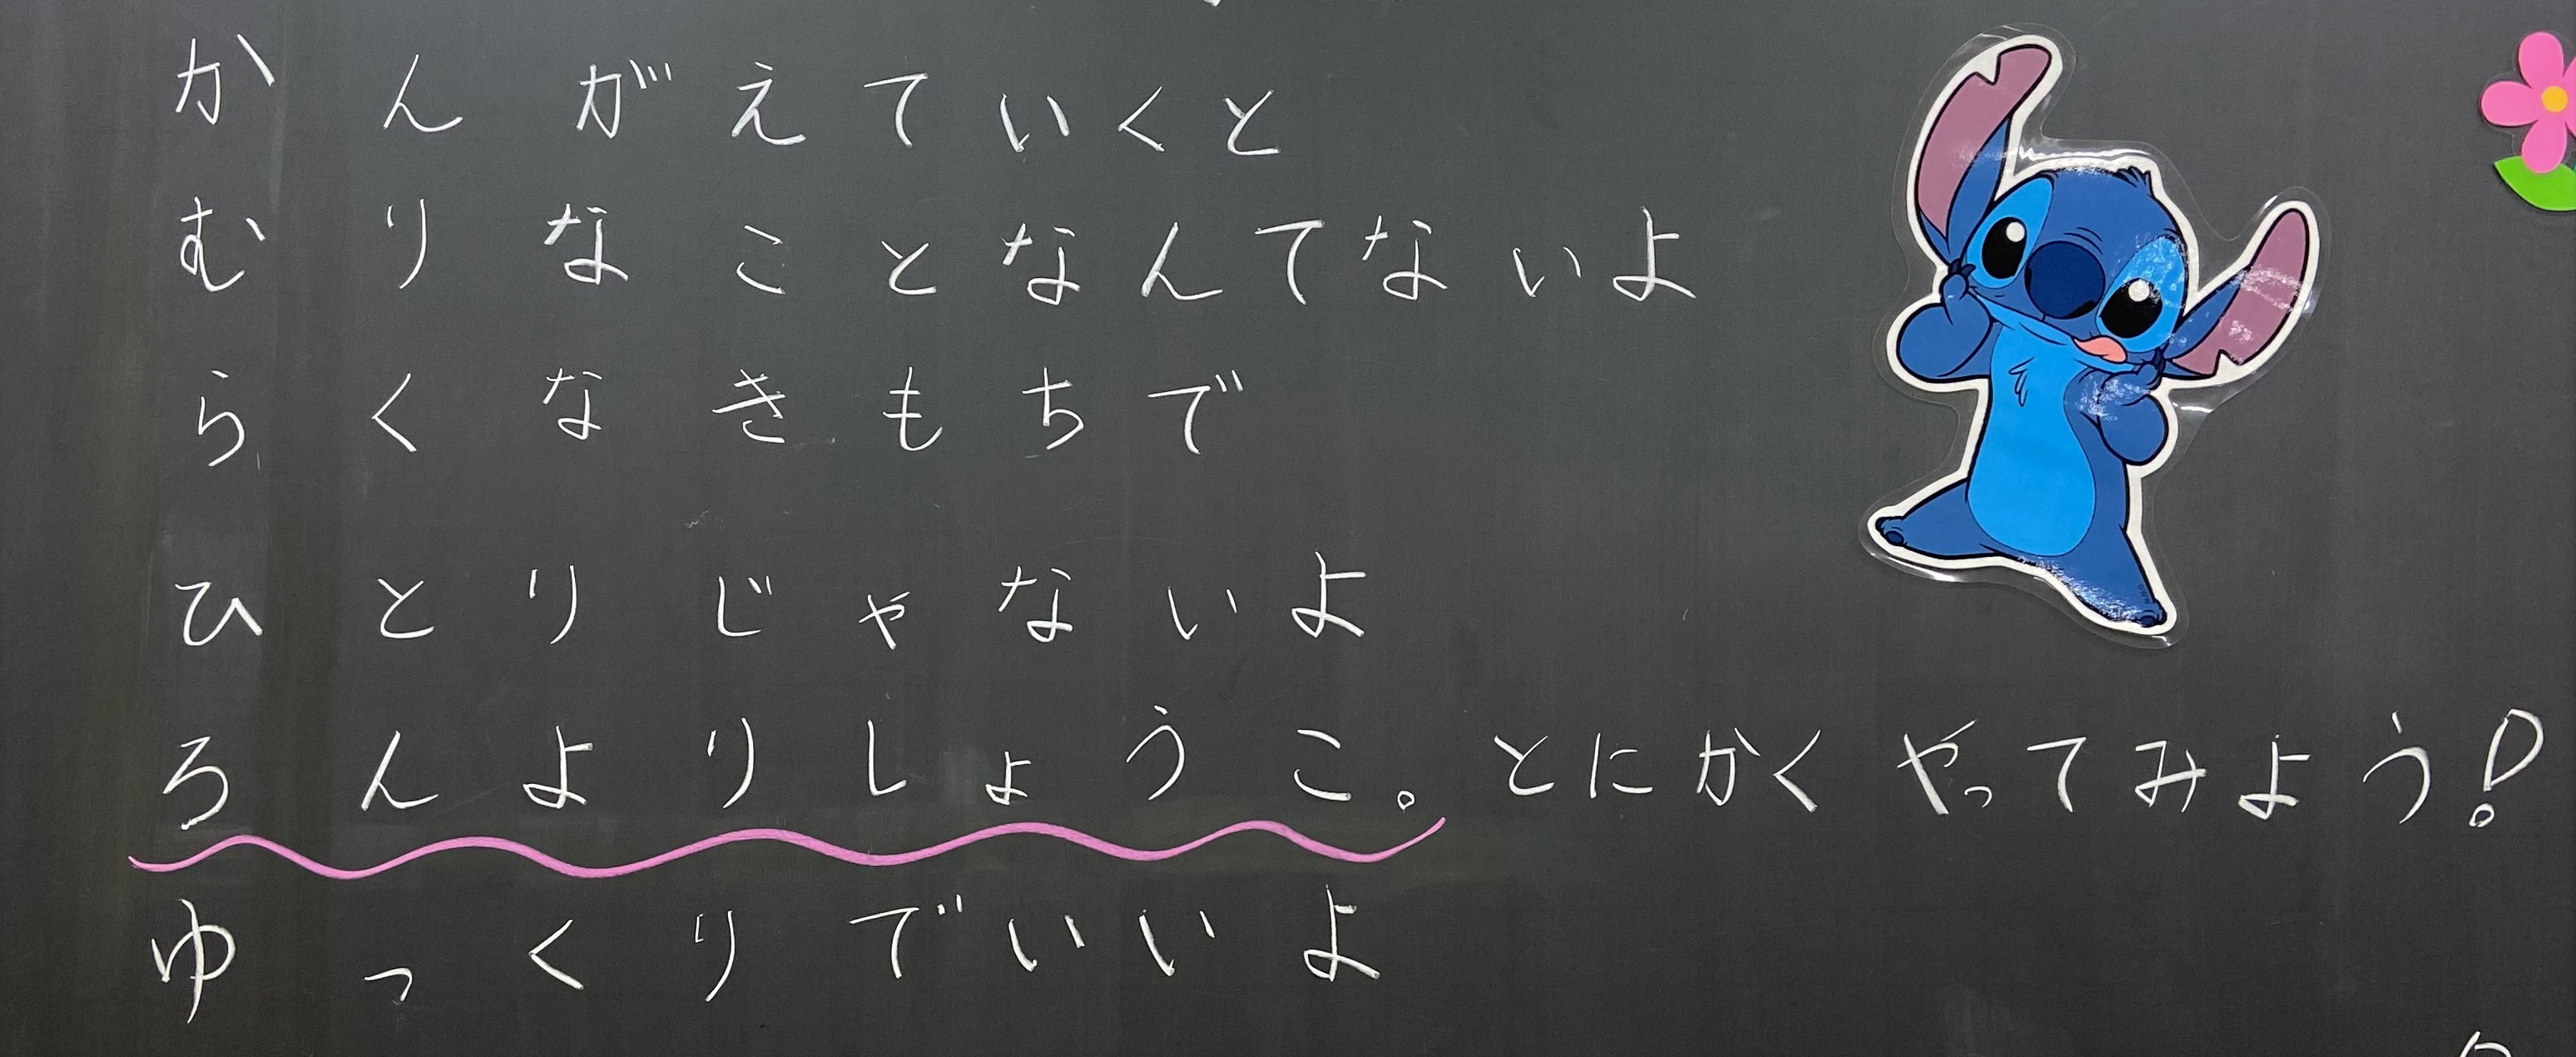 かんがえていくと
むりなことなんてないよ
らくなきもちで
ひとりじゃないよ
ろんよりしょうこ。とにかくやってみよう!
ゆっくりでいいよ